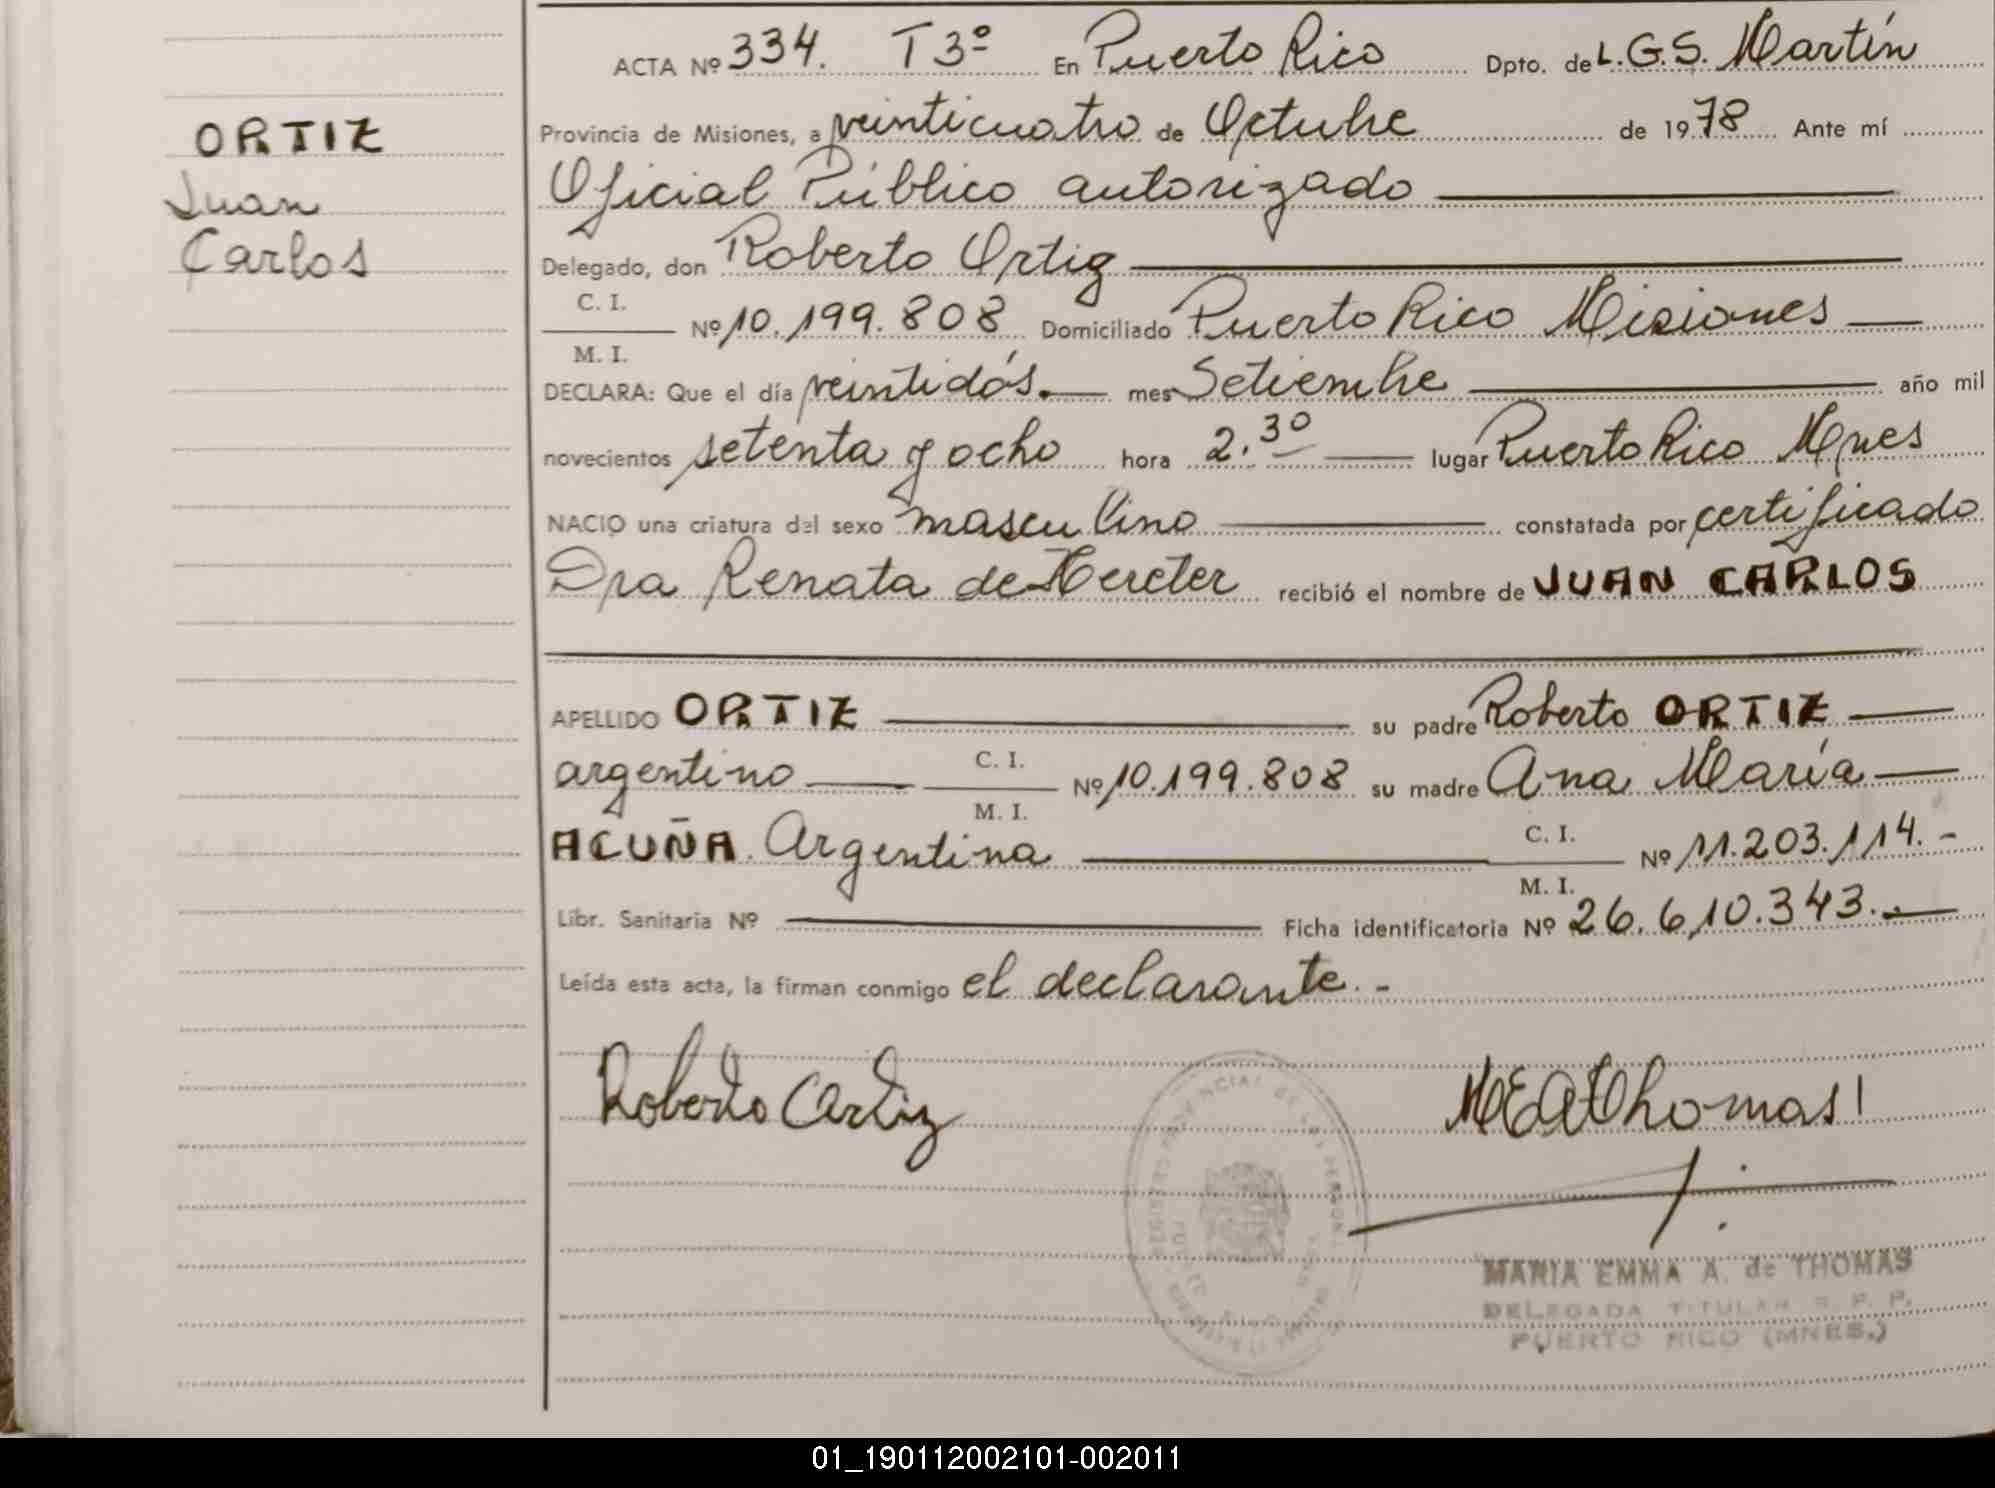 ORTIZ
Juan
Carlos
ACTA Nº 334. T 3º En Puerto Rico Dpto. de L.G.S. Martín
Provincia de Misiones, a veinticuatro de Octubre de 1978 Ante mí
Oficial Público autorizado
Delegado, don Roberto Ortiz
C. I.
M. I.
Nº 10.199.808 Domiciliado Puerto Rico Misiones
DECLARA: Que el día veintidós. mes Setiembre año mil
novecientos setenta y ocho hora 2.30 lugar Puerto Rico Mnes
NACIO una criatura del sexo masculino constatada por certificado
Dra Renata de recibió el nombre de JUAN CARLOS
APELLIDO ORTIZ su padre Roberto ORTIZ
argentino C. I. M. I. Nº 10.199.808 su madre Ana María
ACUÑA. Argentina C. I. M. I. Nº 11.203.114.-
Libr. Sanitaria Nº Ficha identificatoria Nº 26.610.343.-
Leída esta acta, la firman conmigo el declarante.-
Roberto Ortiz
MEAThomas
MARIA EMMA A. de THOMAS
DELEGADA TITULAR R. P. P.
PUERTO RICO (MNES.)
01_190112002101-002011